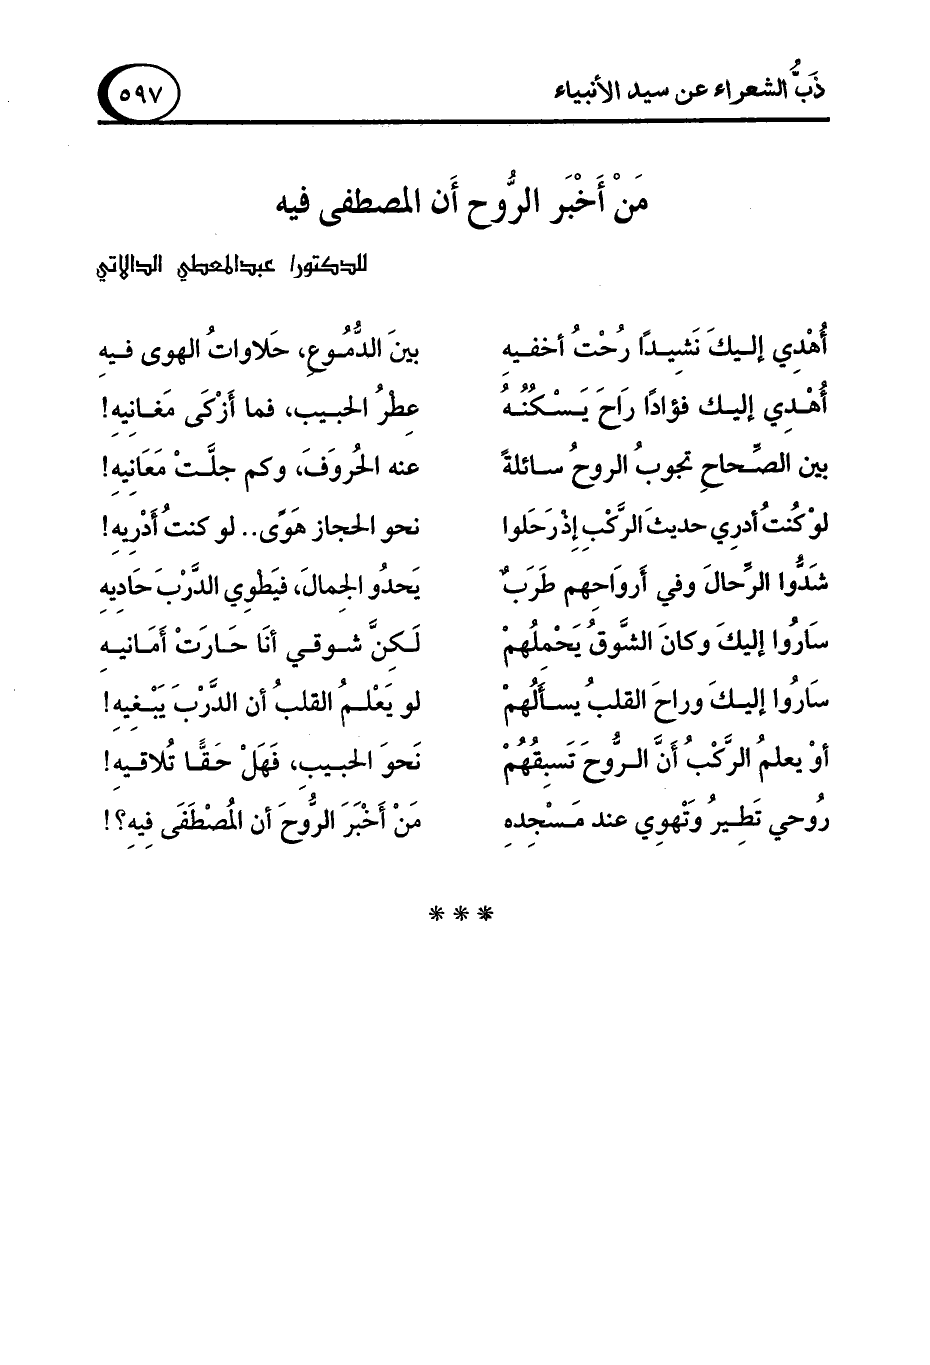 ذَبُّ الشعراء عن سيد الأنبياء ٥٩٧
مَنْ أَخْبَر الرُّوح أَن المصطفى فيه
للدكتور/ عبدالمعطي الدالاتي
أُهْدي إليكَ نَشيدًا رُحْتُ أخفيهِ بينَ الدُّمُوعِ، حَلاواتُ الهوى فيهِ
أُهْدِي إليك فؤادًا رَاحَ يَسْكُنُهُ عِطْرُ الحبيبِ، فما أَزْكَى مَغانِيهِ!
بين الصِّحاحِ تجوبُ الروحُ سائلةً عنه الحُروَفَ، وكم جلَّتْ مَعَانِيهِ!
لوْ كُنتُ أدري حديثَ الرَّكْبِ إذْ رَحَلوا نحو الحجازِ هَوًى.. لو كنتُ أدْرِيهِ!
شَدُّوا الرِّحالَ وفي أَرواحِهم طَرَبٌ يَحدُو الجِمالَ، فيَطْوِي الدَّرْبَ حَادِيهِ
سَارُوا إليكَ وكانَ الشَّوقُ يَحْمِلُهمْ لَكنَّ شوقي أنَا حَارَتْ أمَانيهِ
سَارُوا إليكَ وراحَ القلبُ يسألُهمْ لو يَعْلمُ القلبُ أن الدَّرْبَ يَبْغِيهِ!
أوْ يعلمُ الرَّكْبُ أنَّ الرُّوحَ تَسبِقُهُمْ نَحوَ الحبيبِ، فَهَلْ حَقًّا تُلاقيهِ!
رُوحي تَطيرُ وَتْهوِي عند مَسْجِدِهِ مَنْ أَخْبَرَ الرُّوحَ أن المُصْطَفَى فِيهِ؟!
* * *